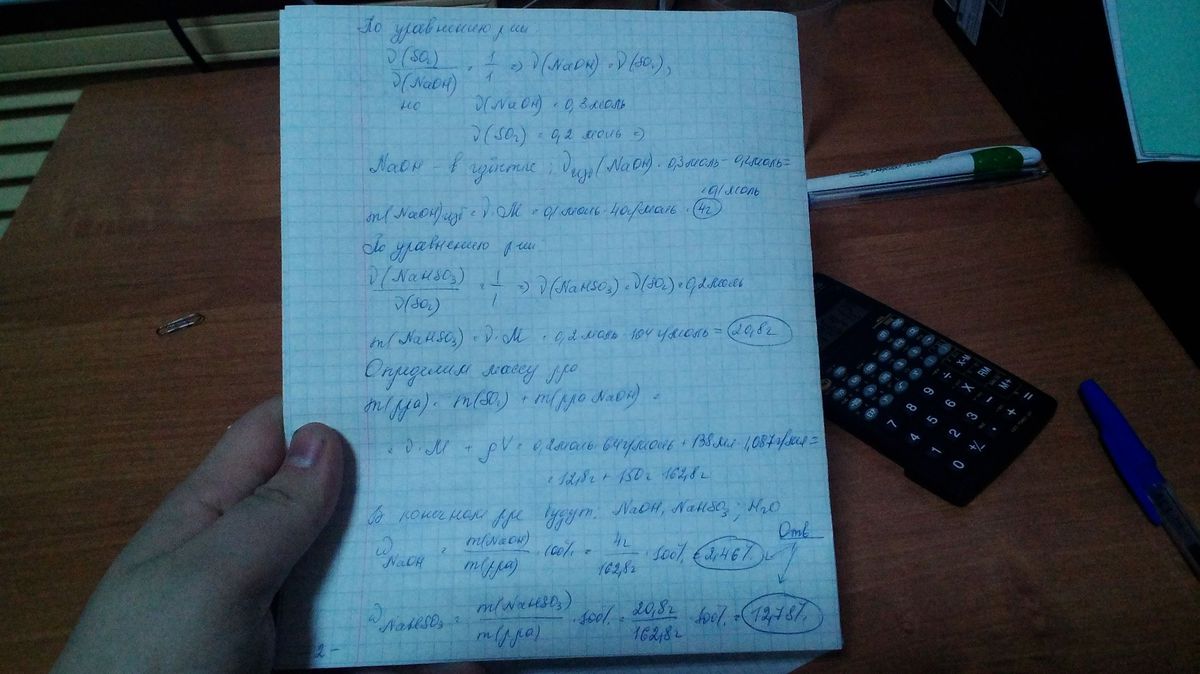 По уравнению р-ии
ν(SO₂)/ν(NaOH) = 1/1 => ν(NaOH) = ν(SO₂),
но ν(NaOH) = 0,3 моль
ν(SO₂) = 0,2 моль =>
NaOH - в избытке; νизб(NaOH) = 0,3моль - 0,2моль =
= 0,1 моль
m(NaOH)изб = ν·M = 0,1 моль · 40г/моль = 4г
По уравнению р-ии
ν(NaHSO₃)/ν(SO₂) = 1/1 => ν(NaHSO₃) = ν(SO₂) = 0,2моль
m(NaHSO₃) = ν·M = 0,2 моль · 104 г/моль = 20,8г
Определим массу р-ра
m(р-ра) = m(SO₂) + m(р-ра NaOH) =
= ν·M + ρV = 0,2моль · 64г/моль + 138мл · 1,087г/мл =
= 12,8г + 150г = 162,8г
В конечном р-ре будут: NaOH, NaHSO₃; H₂O
Отв
ωNaOH = m(NaOH)/m(р-ра) · 100% = 4г/162,8г · 100% = 2,46%
ωNaHSO₃ = m(NaHSO₃)/m(р-ра) · 100% = 20,8г/162,8г · 100% = 12,78%
-2-
7 8 9 ÷ X-M
4 5 6 × RM
1 2 3 − M+
0 +/- · + =